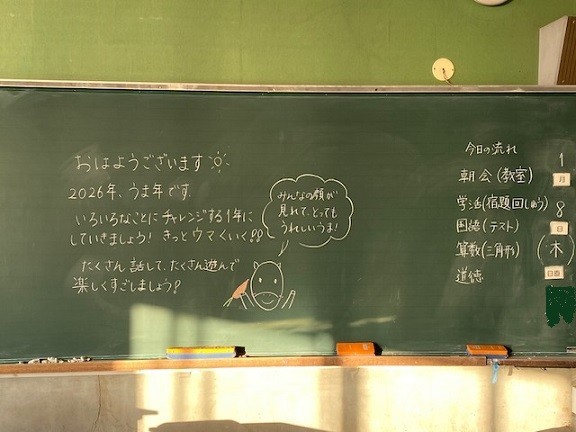 おはようございます
2026年、うま年です。
いろいろなことにチャレンジする1年に
していきましょう! きっとウマくいく!!
たくさん話して、たくさん遊んで
楽しくすごしましょう!
みんなの顔が
見れて、とっても
うれしいうま!
今日の流れ
朝会(教室)
学活(宿題回しゅう)
国語(テスト)
算数(三角形)
道徳
1
月
8
日
(木)
日直